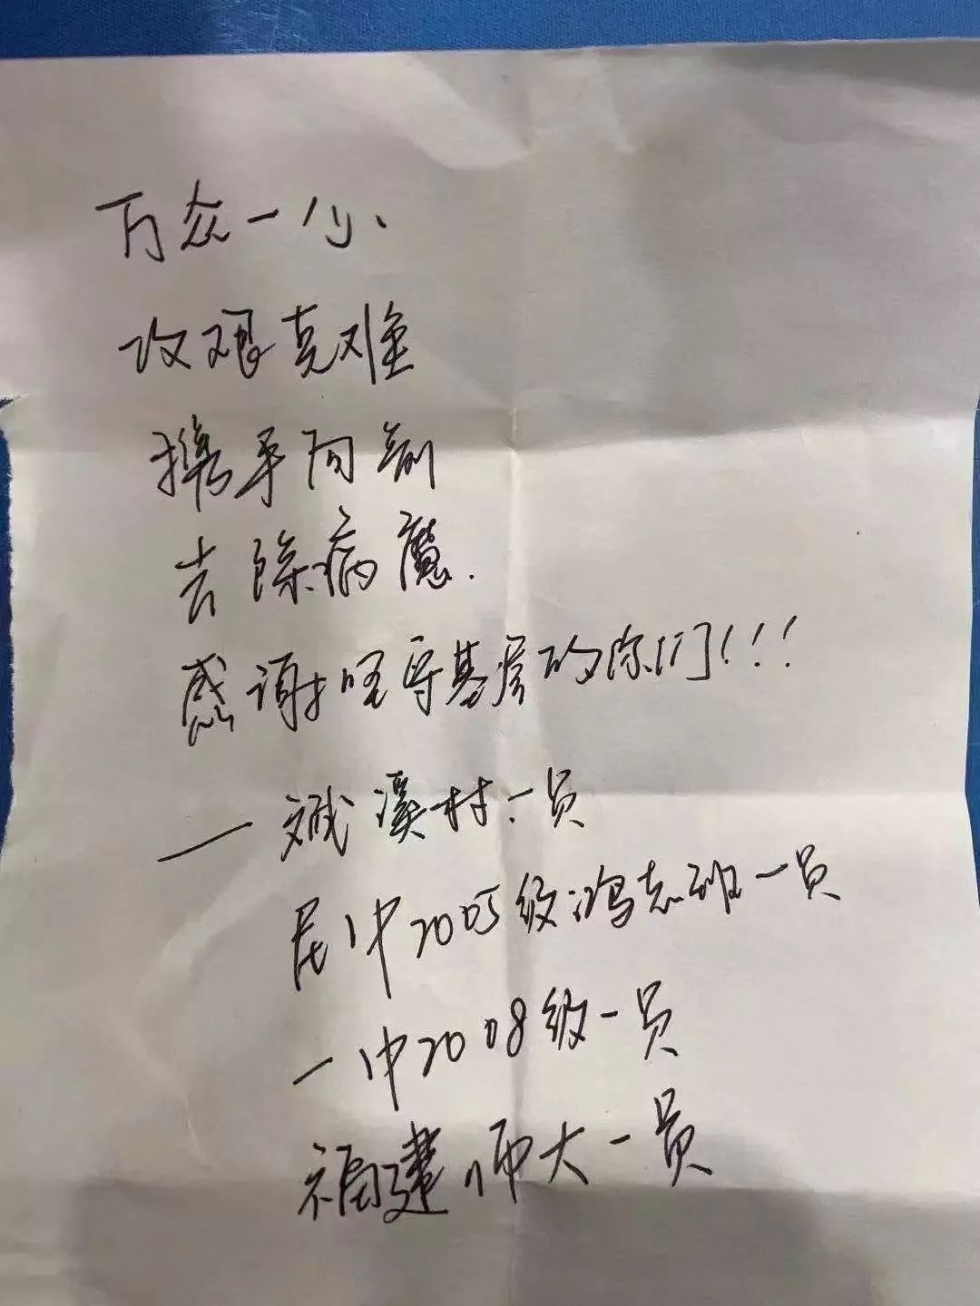 万众一心、
攻艰克难
携手向前
去除病魔.
感谢坚守基层的你们!!!
一 溪村一员
民中2005级鸿志班一员
一中2008级一员
福建师大一员